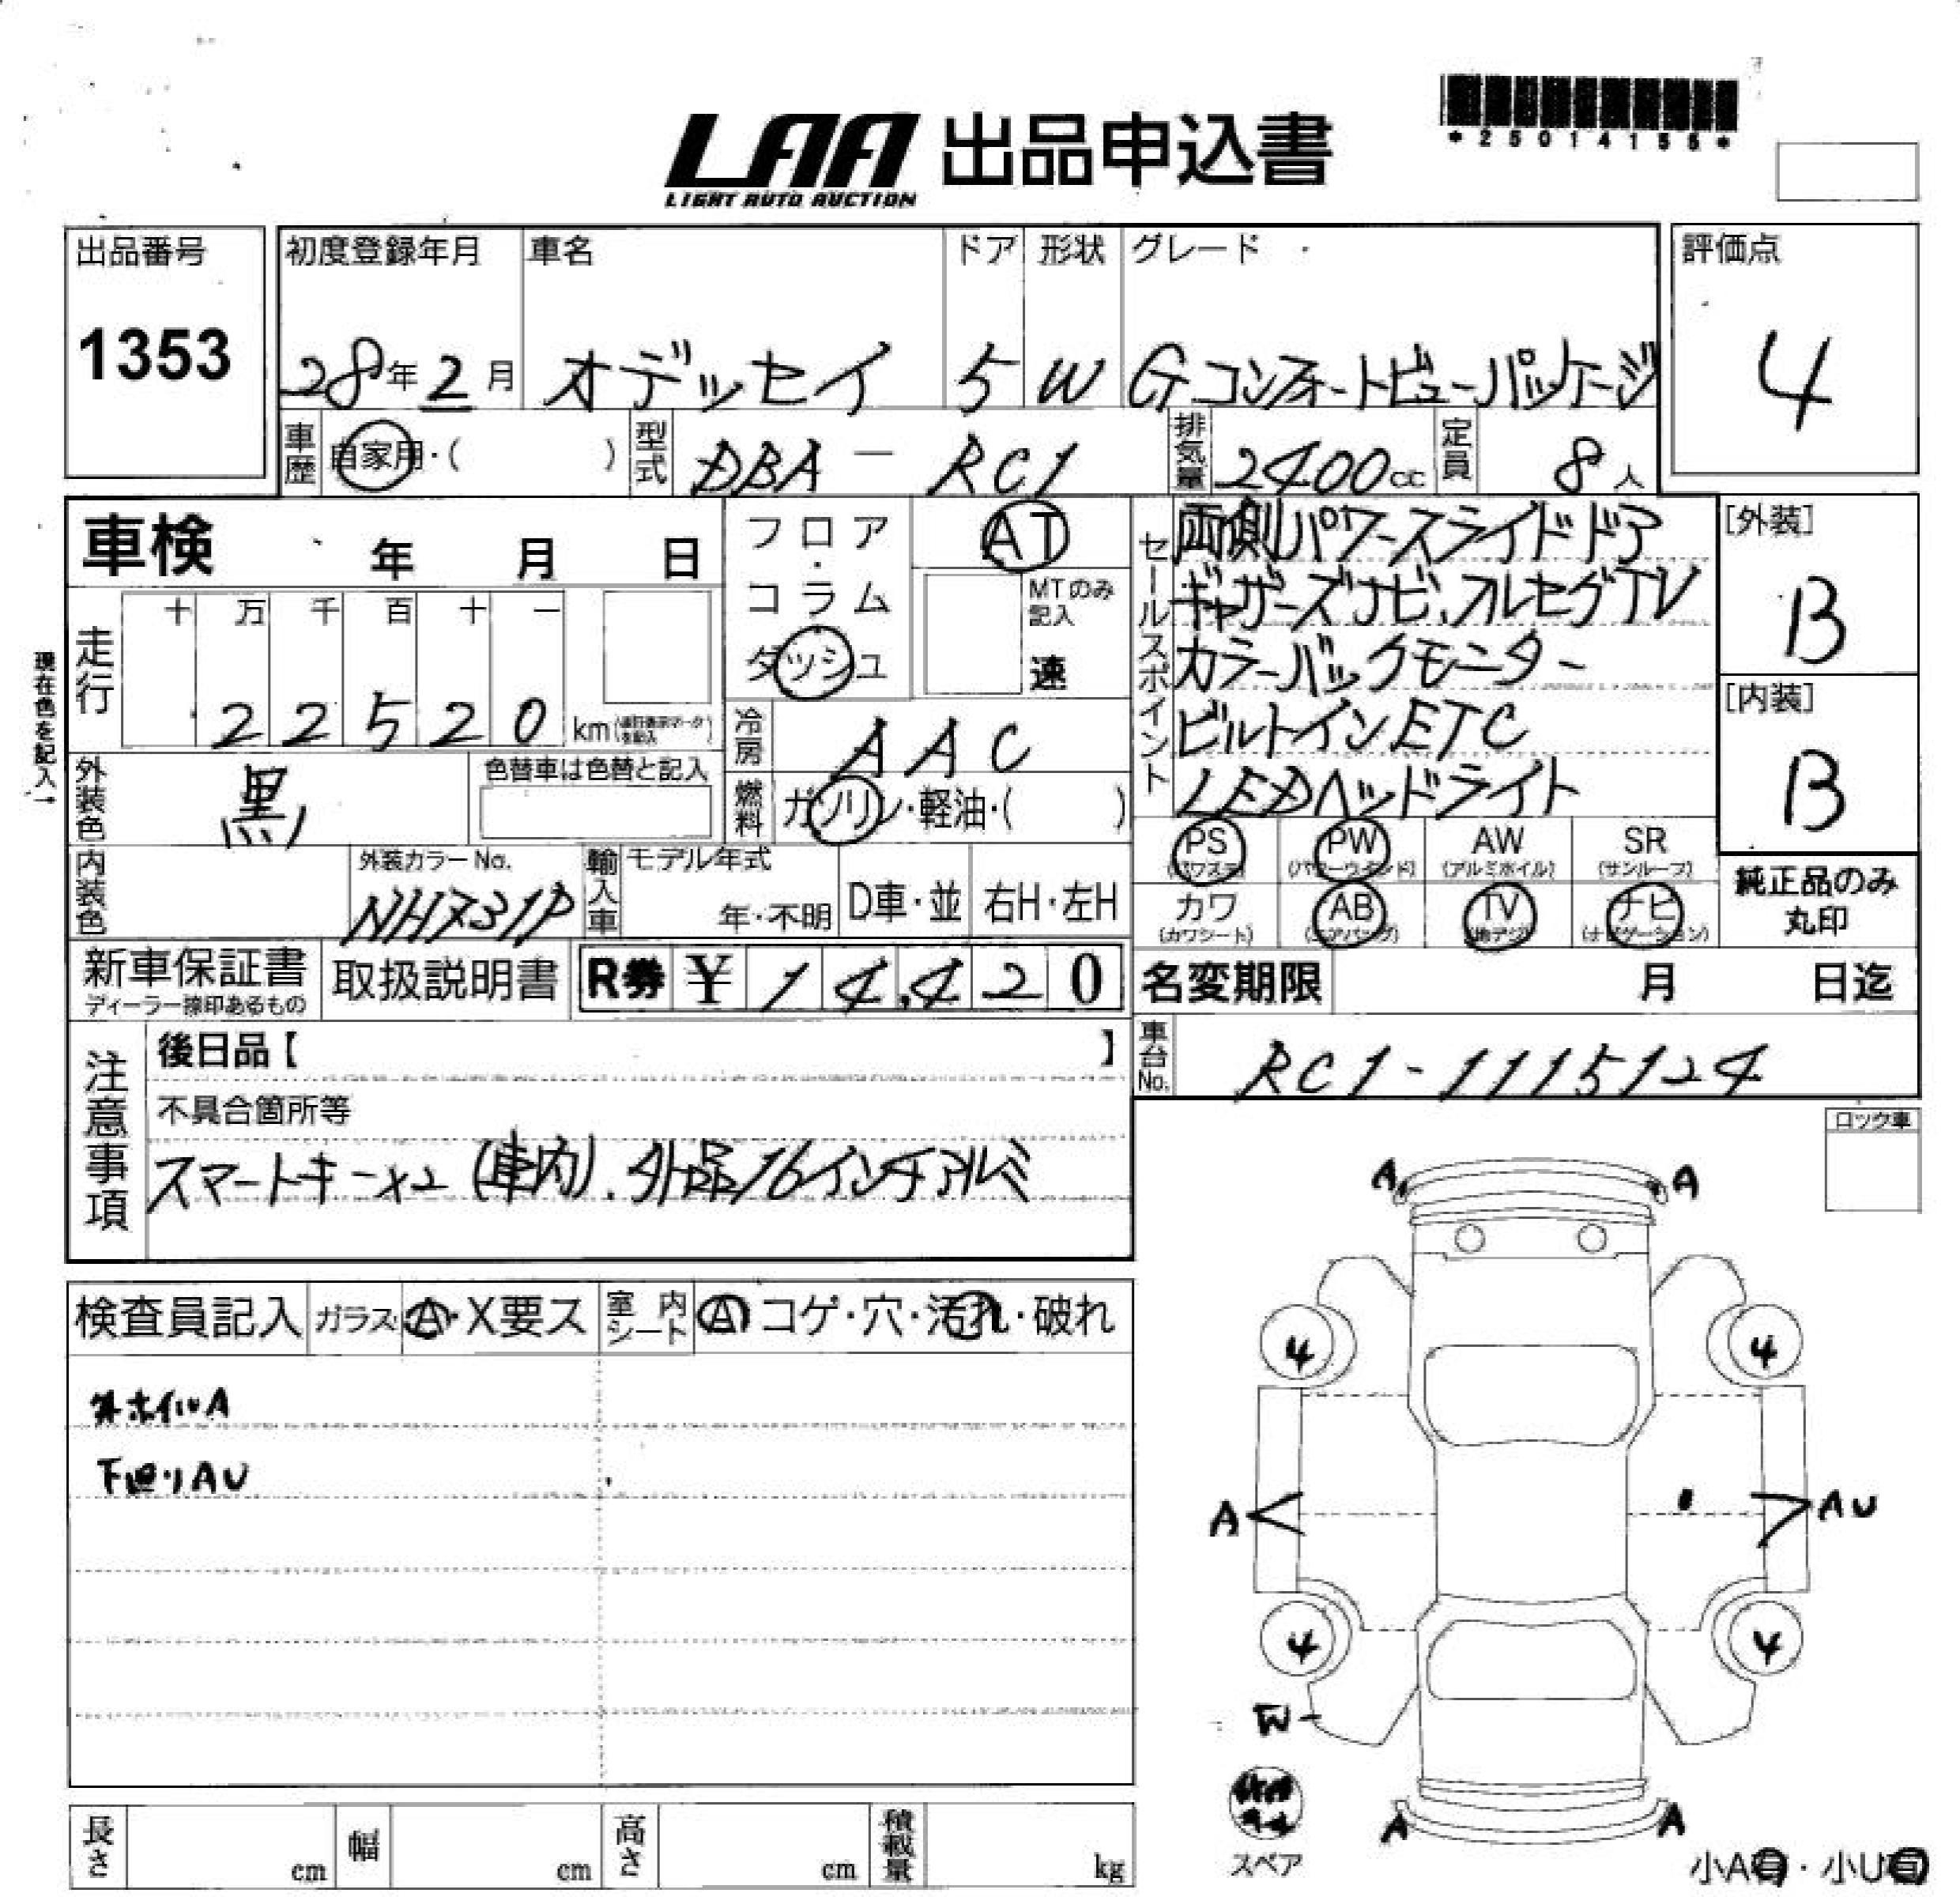 *25014155*
LAA 出品申込書
LIGHT AUTO AUCTION
出品番号
1353
初度登録年月
28年2月
車名
オデッセイ
ドア
5
形状
W
グレード
Gコンフォートビューパッケージ
評価点
4
車歴
自家用・( )
型式
DBA - RC1
排気量
2400cc
定員
8人
車検 年 月 日
現在色を記入→
走行
十 万 千 百 十 一
22520 km
外装色
黒
色替車は色替と記入
内装色
外装カラーNo.
NH731P
フロア・コラム
ダッシュ
AT
MTのみ記入
速
冷房
AAC
燃料
ガソリン・軽油・( )
輸入車
モデル年式
年・不明
D車・並
右H・左H
セールスポイント
両側パワースライドドア
ギャザーズナビ.フルセグTV
カラーバックモニター
ビルトインETC
LEDヘッドライト
[外装]
B
[内装]
B
PS
(パワステ)
PW
(パワーウインド)
AW
(アルミホイル)
SR
(サンルーフ)
カワ
(カワシート)
AB
(エアバッグ)
TV
(地デジ)
ナビ
(ナビゲーション)
純正品のみ
丸印
新車保証書
ディーラー捺印あるもの
取扱説明書
R券 ¥14,420
名変期限 月 日迄
車台No.
RC1-1115124
注意事項
後日品【 】
不具合箇所等
スマートキー×2 (車内).外品16インチアルミ
ロック車
検査員記入
ガラス
A・X要ス
室内シート
A コゲ・穴・汚れ・破れ
外ホイルA
下廻りAU
A A
4 4
A AU
4 4
W
スペア
A A
小A有・小U有
長さ cm
幅 cm
高さ cm
積載量 kg